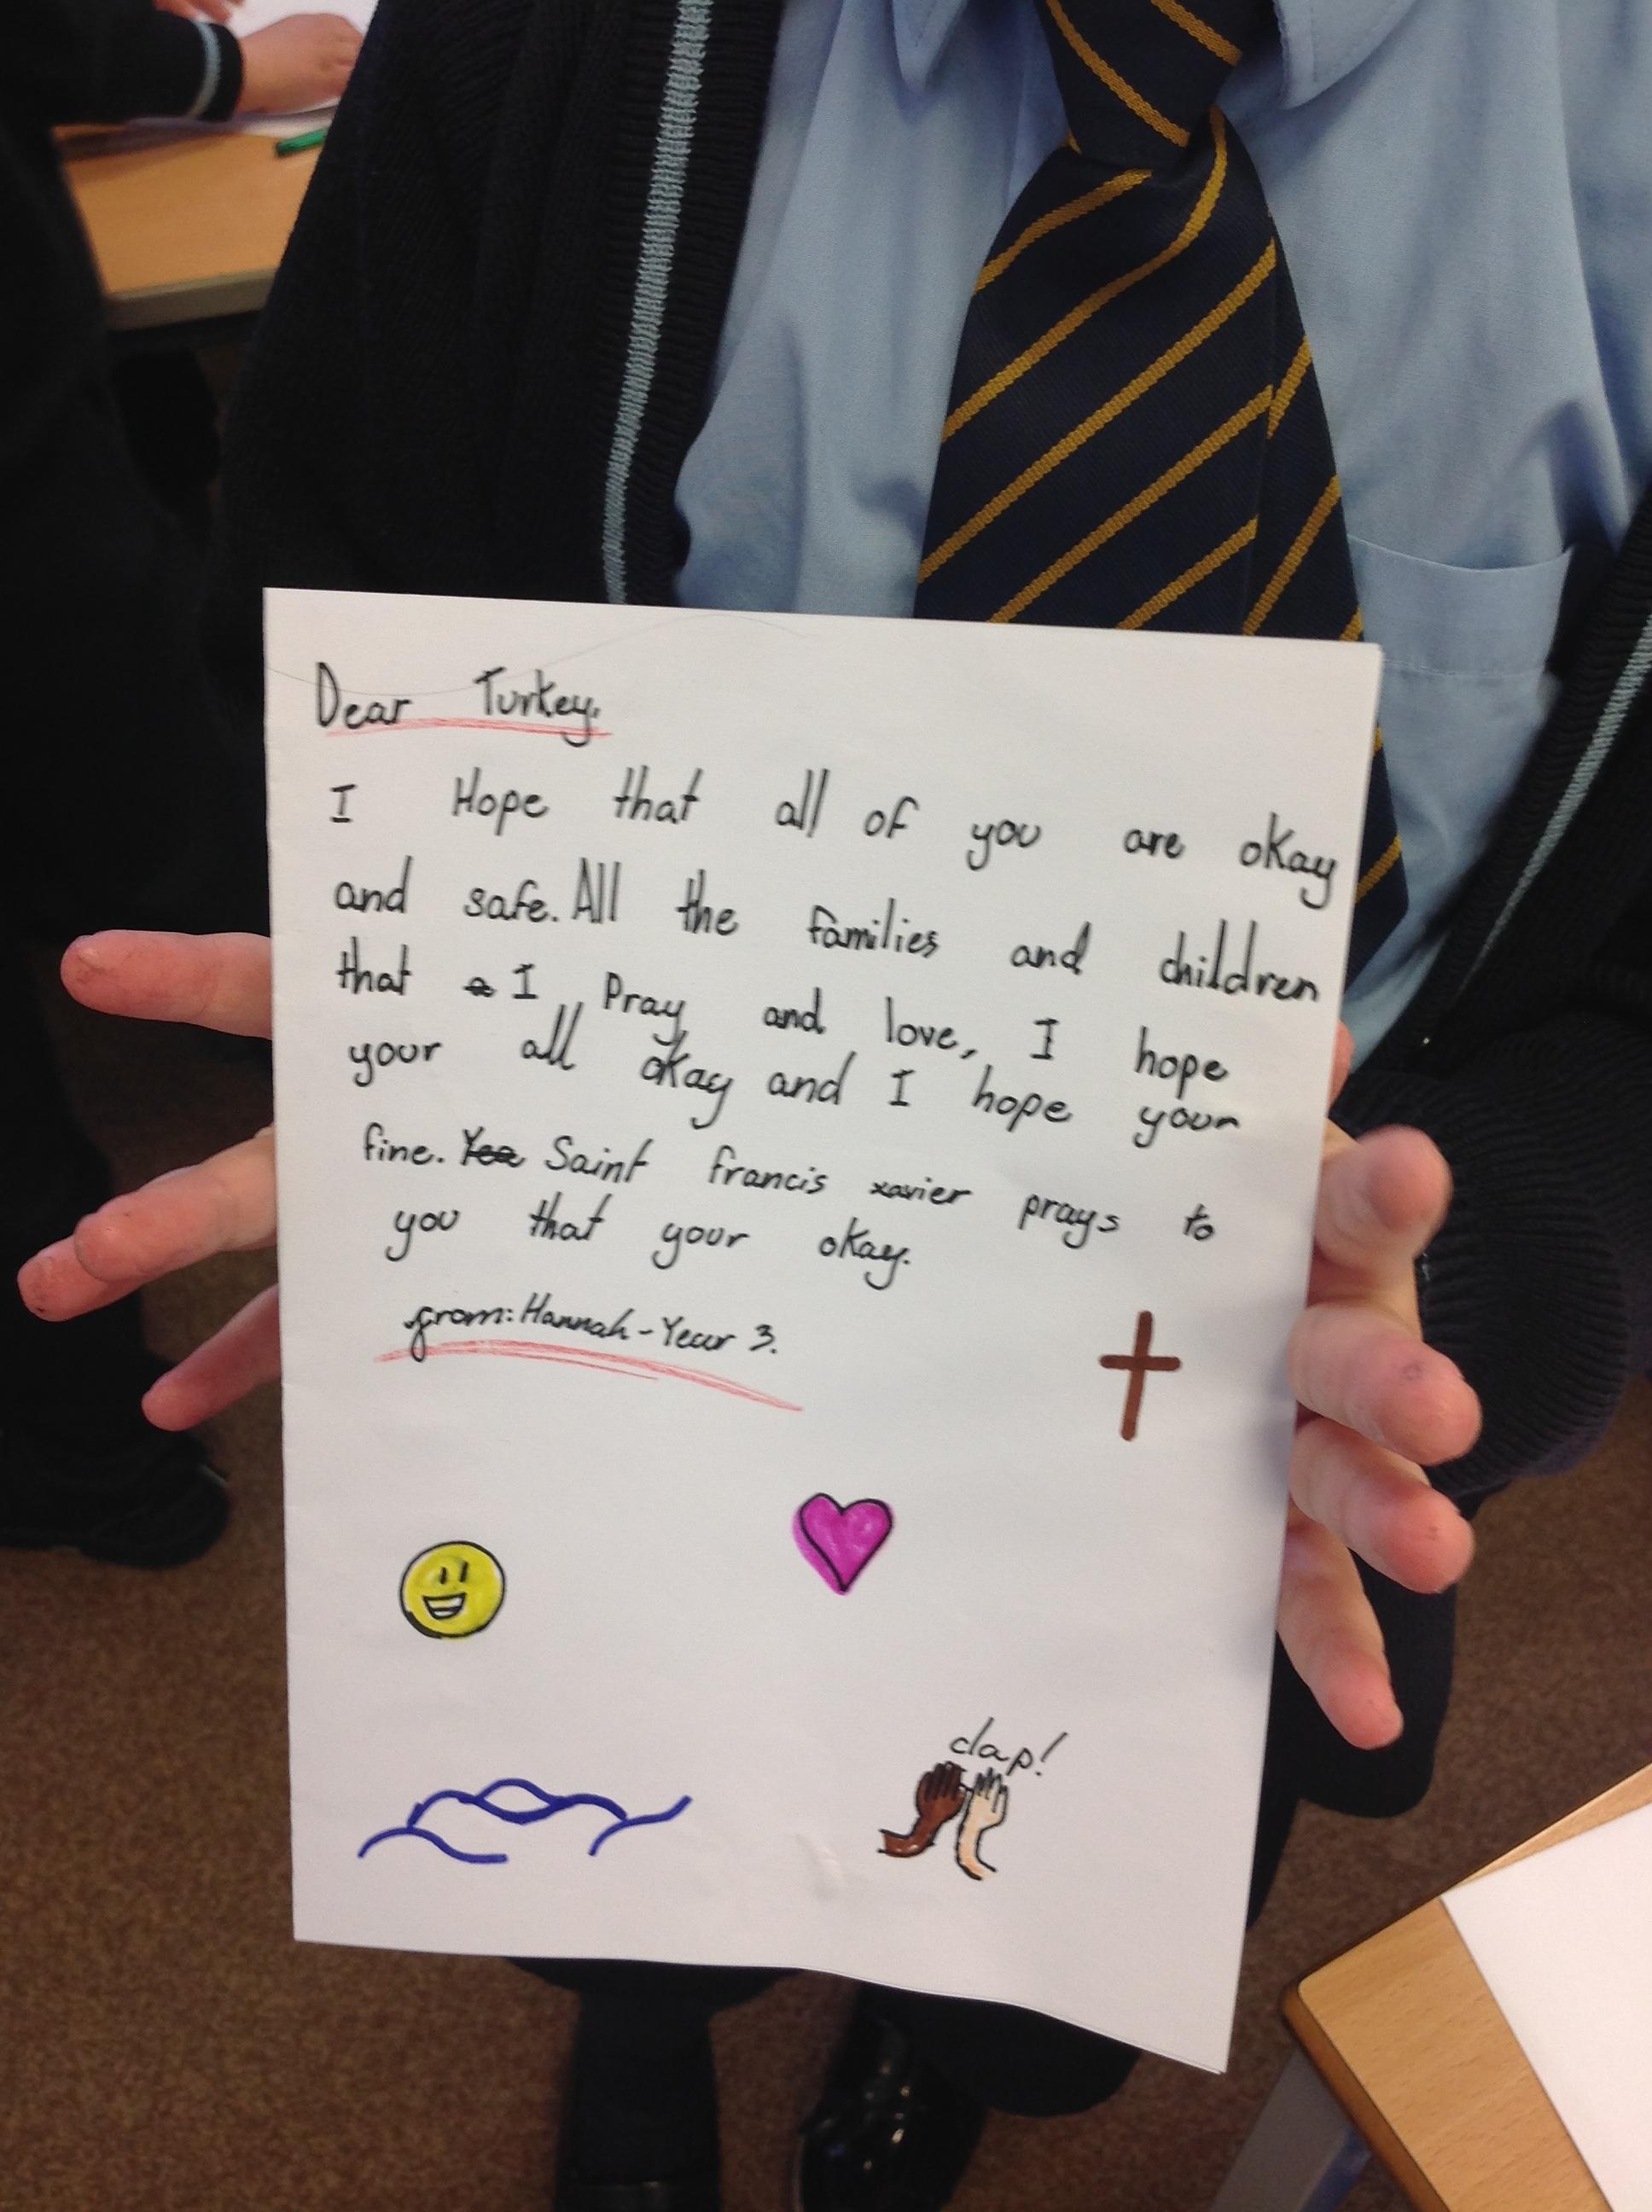 Dear Turkey,
I Hope that all of you are okay
and safe. All the families and children
that I Pray and love, I hope
your all okay and I hope your
fine. Saint francis xavier prays to
you that your okay.
from: Hannah - Year 3.
clap!